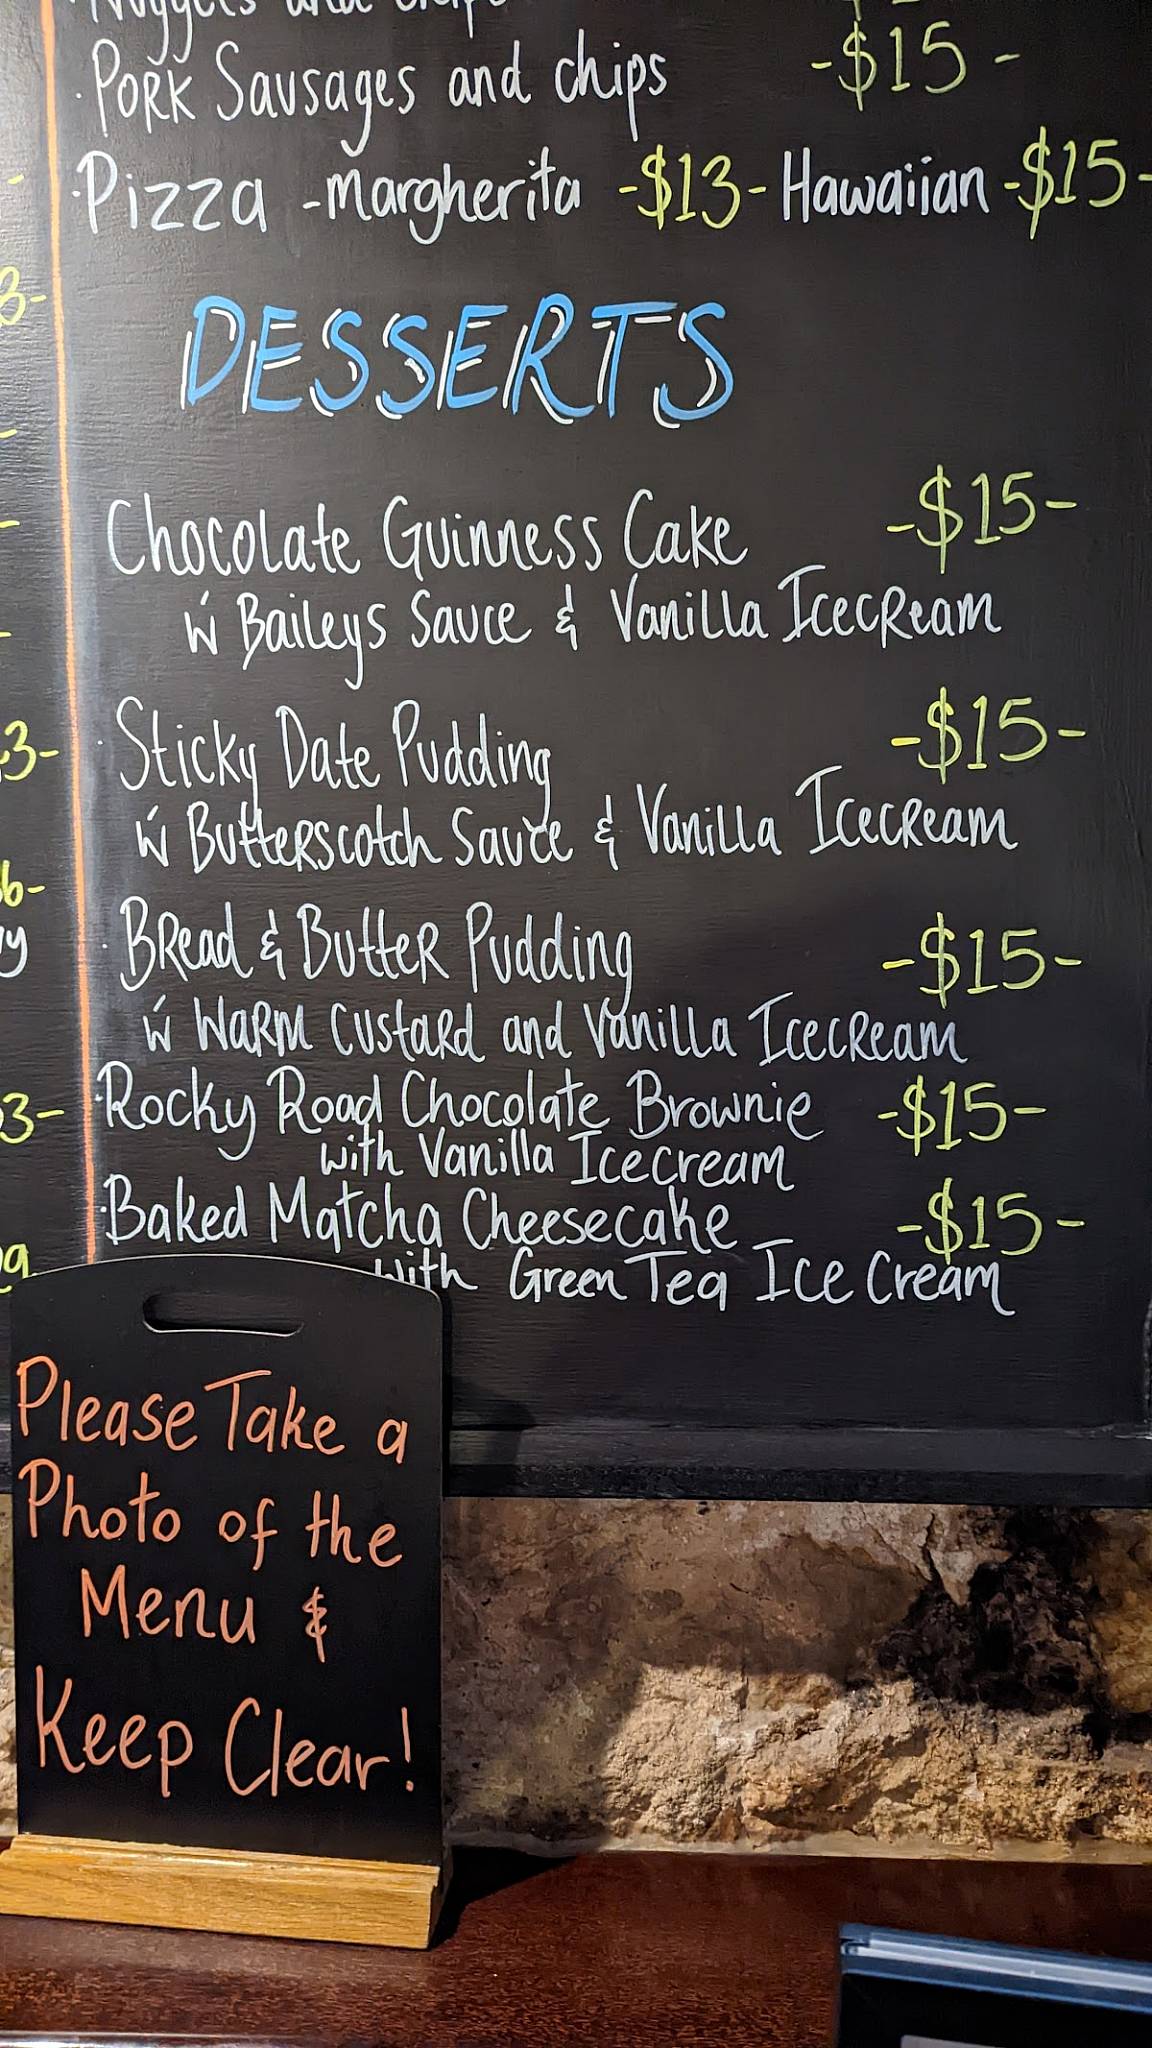 Nuggets and chips
Pork Sausages and chips -$15-
Pizza -Margherita -$13- Hawaiian -$15-
DESSERTS
Chocolate Guinness Cake -$15-
w Baileys Sauce & Vanilla Icecream
Sticky Date Pudding -$15-
w Butterscotch Sauce & Vanilla Icecream
Bread & Butter Pudding -$15-
w Warm Custard and Vanilla Icecream
Rocky Road Chocolate Brownie -$15-
with Vanilla Icecream
Baked Matcha Cheesecake -$15-
with Green Tea Ice Cream
Please Take a
Photo of the
Menu &
Keep Clear!